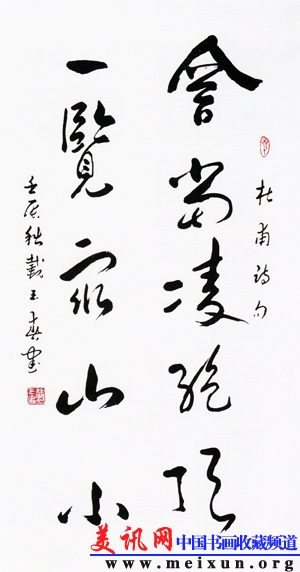 杜甫詩句
會當凌絕頂
一覽眾山小
壬辰秋戴玉
美讯网 中国书画收藏频道
www.meixun.org